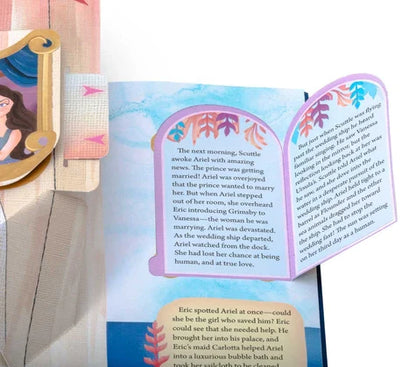 The next morning, Scuttle
awoke Ariel with amazing
news. The prince was getting
married! Ariel was overjoyed
that the prince wanted to marry
her. But when Ariel stepped
out of her room, she overheard
Eric introducing Grimsby to
Vanessa—the woman he was
marrying. Ariel was devastated.
As the wedding ship departed,
Ariel watched from the dock.
She had lost her chance at being
human, and at true love.
But just when Scuttle was flying
past the wedding ship he heard
familiar singing. He saw Vanessa
looking in the mirror, but her
reflection looking back was
Ursula's. Scuttle told Ariel what
he saw, and she dove into the
water in a desperate pursuit of the
wedding ship. Ariel held tight to a
barrel as Flounder and the other
sea animals dragged her toward
the ship. She had to stop the
wedding fast! The sun was setting
on her third day as a human.
Eric spotted Ariel at once—could
she be the girl who saved him? Eric
could see that she needed help. He
brought her into his palace, and
Eric's maid Carlotta helped Ariel
into a luxurious bubble bath and
took her sailcloth to be cleaned